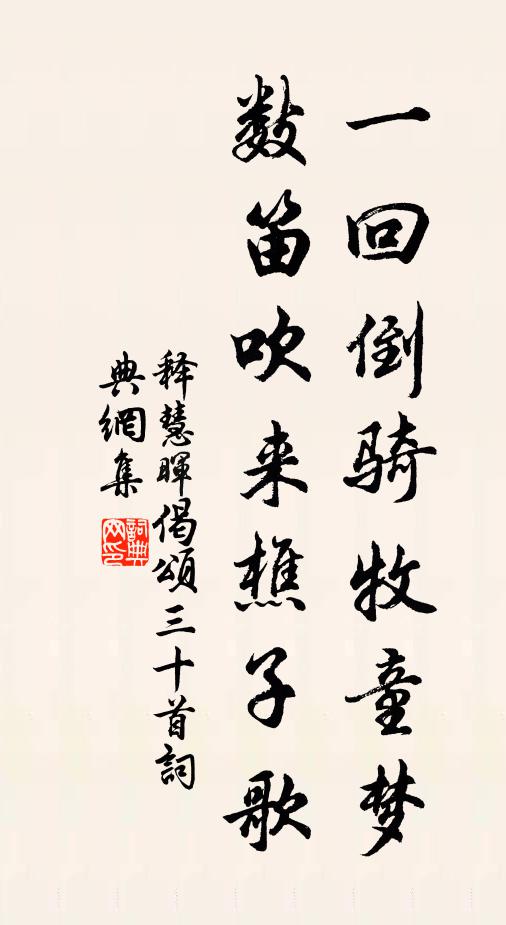 一回倒骑牧童梦
数笛吹来樵子歌
释慧晖偈颂三十首詞
典網集
詞典網印